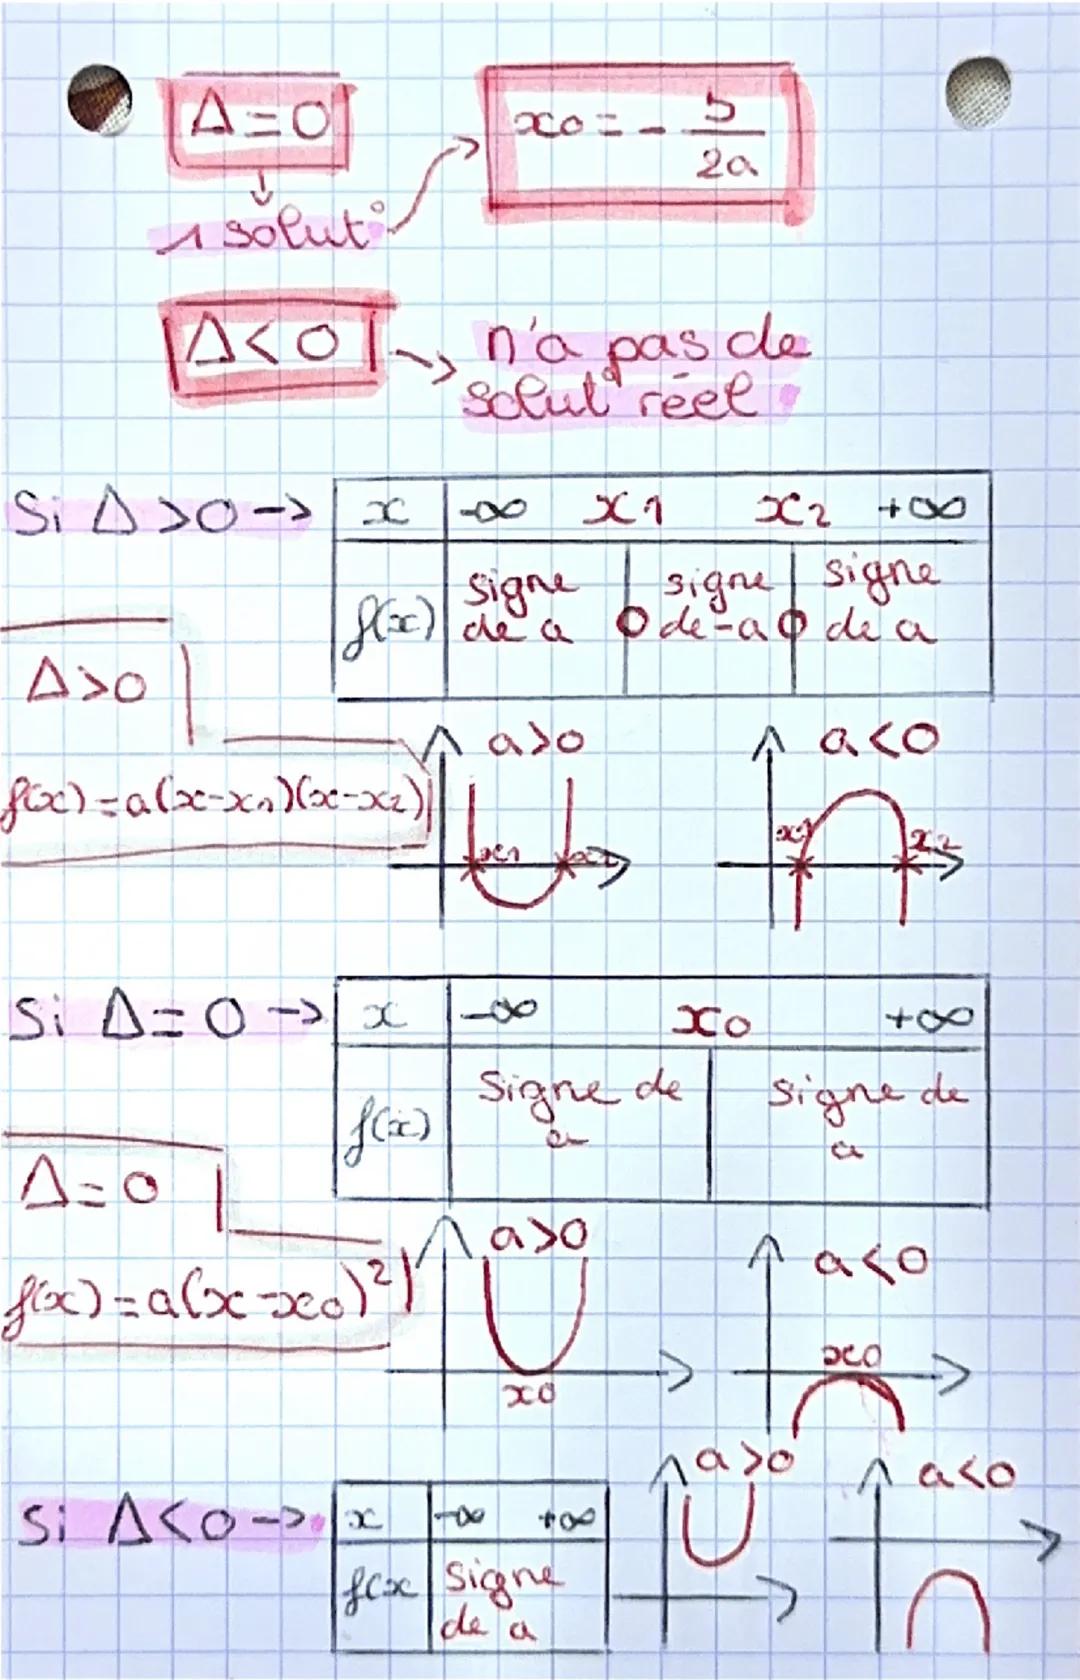 Δ = 0
x0 = - b/2a
1 solut°
Δ < 0
n'a pas de
solut° réel
Si Δ > 0 ->
x -∞ x1 x2 +∞
f(x) signe de a 0 signe de -a 0 signe de a
Δ > 0
f(x) = a(x-x1)(x-x2)
a>0
x1 x2
a<0
x1 x2
Si Δ = 0 ->
x -∞ x0 +∞
f(x) Signe de a signe de a
Δ = 0
f(x) = a(x-x0)²
a>0
x0
a<0
x0
Si Δ < 0 ->
x -∞ +∞
f(x Signe de a
a>0
a<0